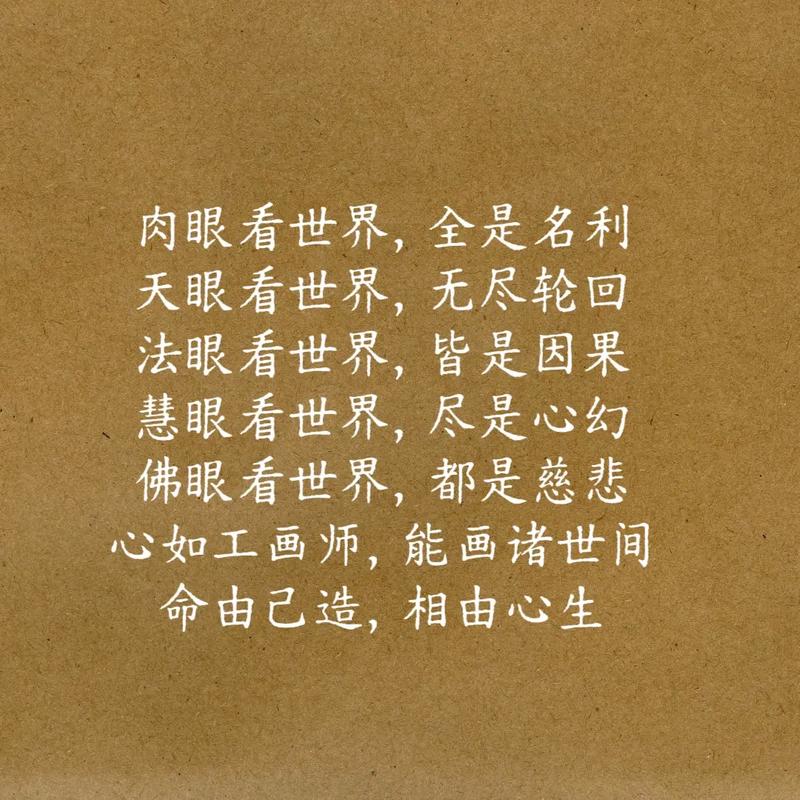 肉眼看世界,全是名利
天眼看世界,无尽轮回
法眼看世界,皆是因果
慧眼看世界,尽是心幻
佛眼看世界,都是慈悲
心如工画师,能画诸世间
命由己造,相由心生